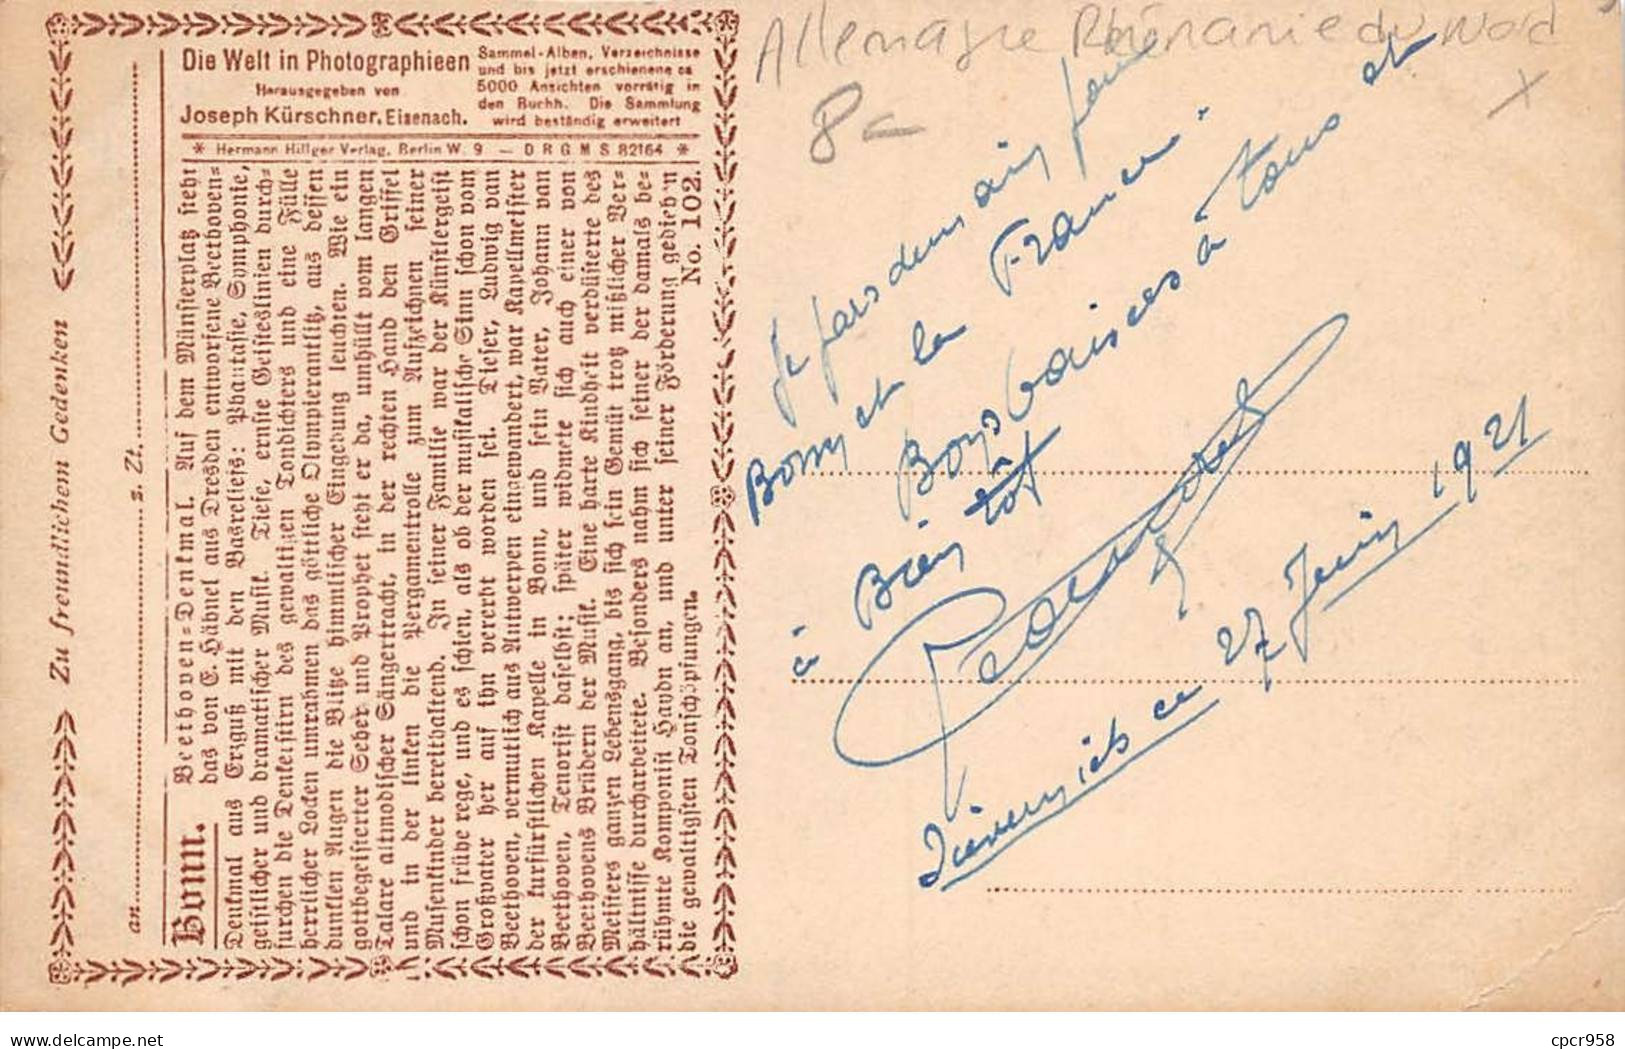 Die Welt in Photographieen
Herausgegeben von
Joseph Kürschner, Eisenach.
Sammel-Alben, Verzeichnisse
und bis jetzt erschienene ca
5000 Ansichten vorrätig in
den Buchh. Die Sammlung
wird beständig erweitert
* Hermann Hillger Verlag, Berlin W. 9 — D R G M S 82164 *
Zu freundlichen Gedenken
an z. Zt.
Bonn.
Beethoven-Denkmal. Auf dem Münsterplatz steht
das von E. Hähnel aus Dresden entworfene Beethoven-
Denkmal aus Erzguß mit den Basreliefs: Phantasie, Symphonie,
geistlicher und dramatischer Musik. Tiefe, ernste Geisteslinien durch-
furchen die Denkerstirn des gewaltigen Tondichters und eine Fülle
herrlicher Locken umrahmen das göttliche Olympierantlitz, aus dessen
dunklen Augen die Blitze himmlischer Eingebung leuchten. Wie ein
gottbegeisterter Seher und Prophet steht er da, umhüllt vom langen
Talare altmodischer Sängertracht, in der rechten Hand den Griffel
und in der linken die Pergamentrolle zum Aufzeichnen seiner
Musenkinder bereithaltend. In seiner Familie war der Künstlergeist
schon frühe rege, und es schien, als ob der musikalische Sinn schon vom
Großvater her auf ihn vererbt worden sei. Dieser, Ludwig van
Beethoven, vermutlich aus Antwerpen eingewandert, war Kapellmeister
der kurfürstlichen Kapelle in Bonn, und sein Vater, Johann van
Beethoven, Tenorist daselbst; später widmete sich auch einer von
Beethovens Brüdern der Musik. Eine harte Kindheit verdüsterte des
Meisters ganzen Lebensgang, bis sich sein Gemüt trotz mißlicher Ver-
hältnisse durcharbeitete. Besonders nahm sich seiner der damals be-
rühmte Komponist Haydn an, und unter seiner Förderung gedieh'n
die gewaltigsten Tonschöpfungen.
No. 102.
Allemagne Rhénanie du Nord
8
Je pars demain pour
Bonn et la France.
Bons baisers à tous et
à Bientôt
ce 27 Juin 1921
cpcr958